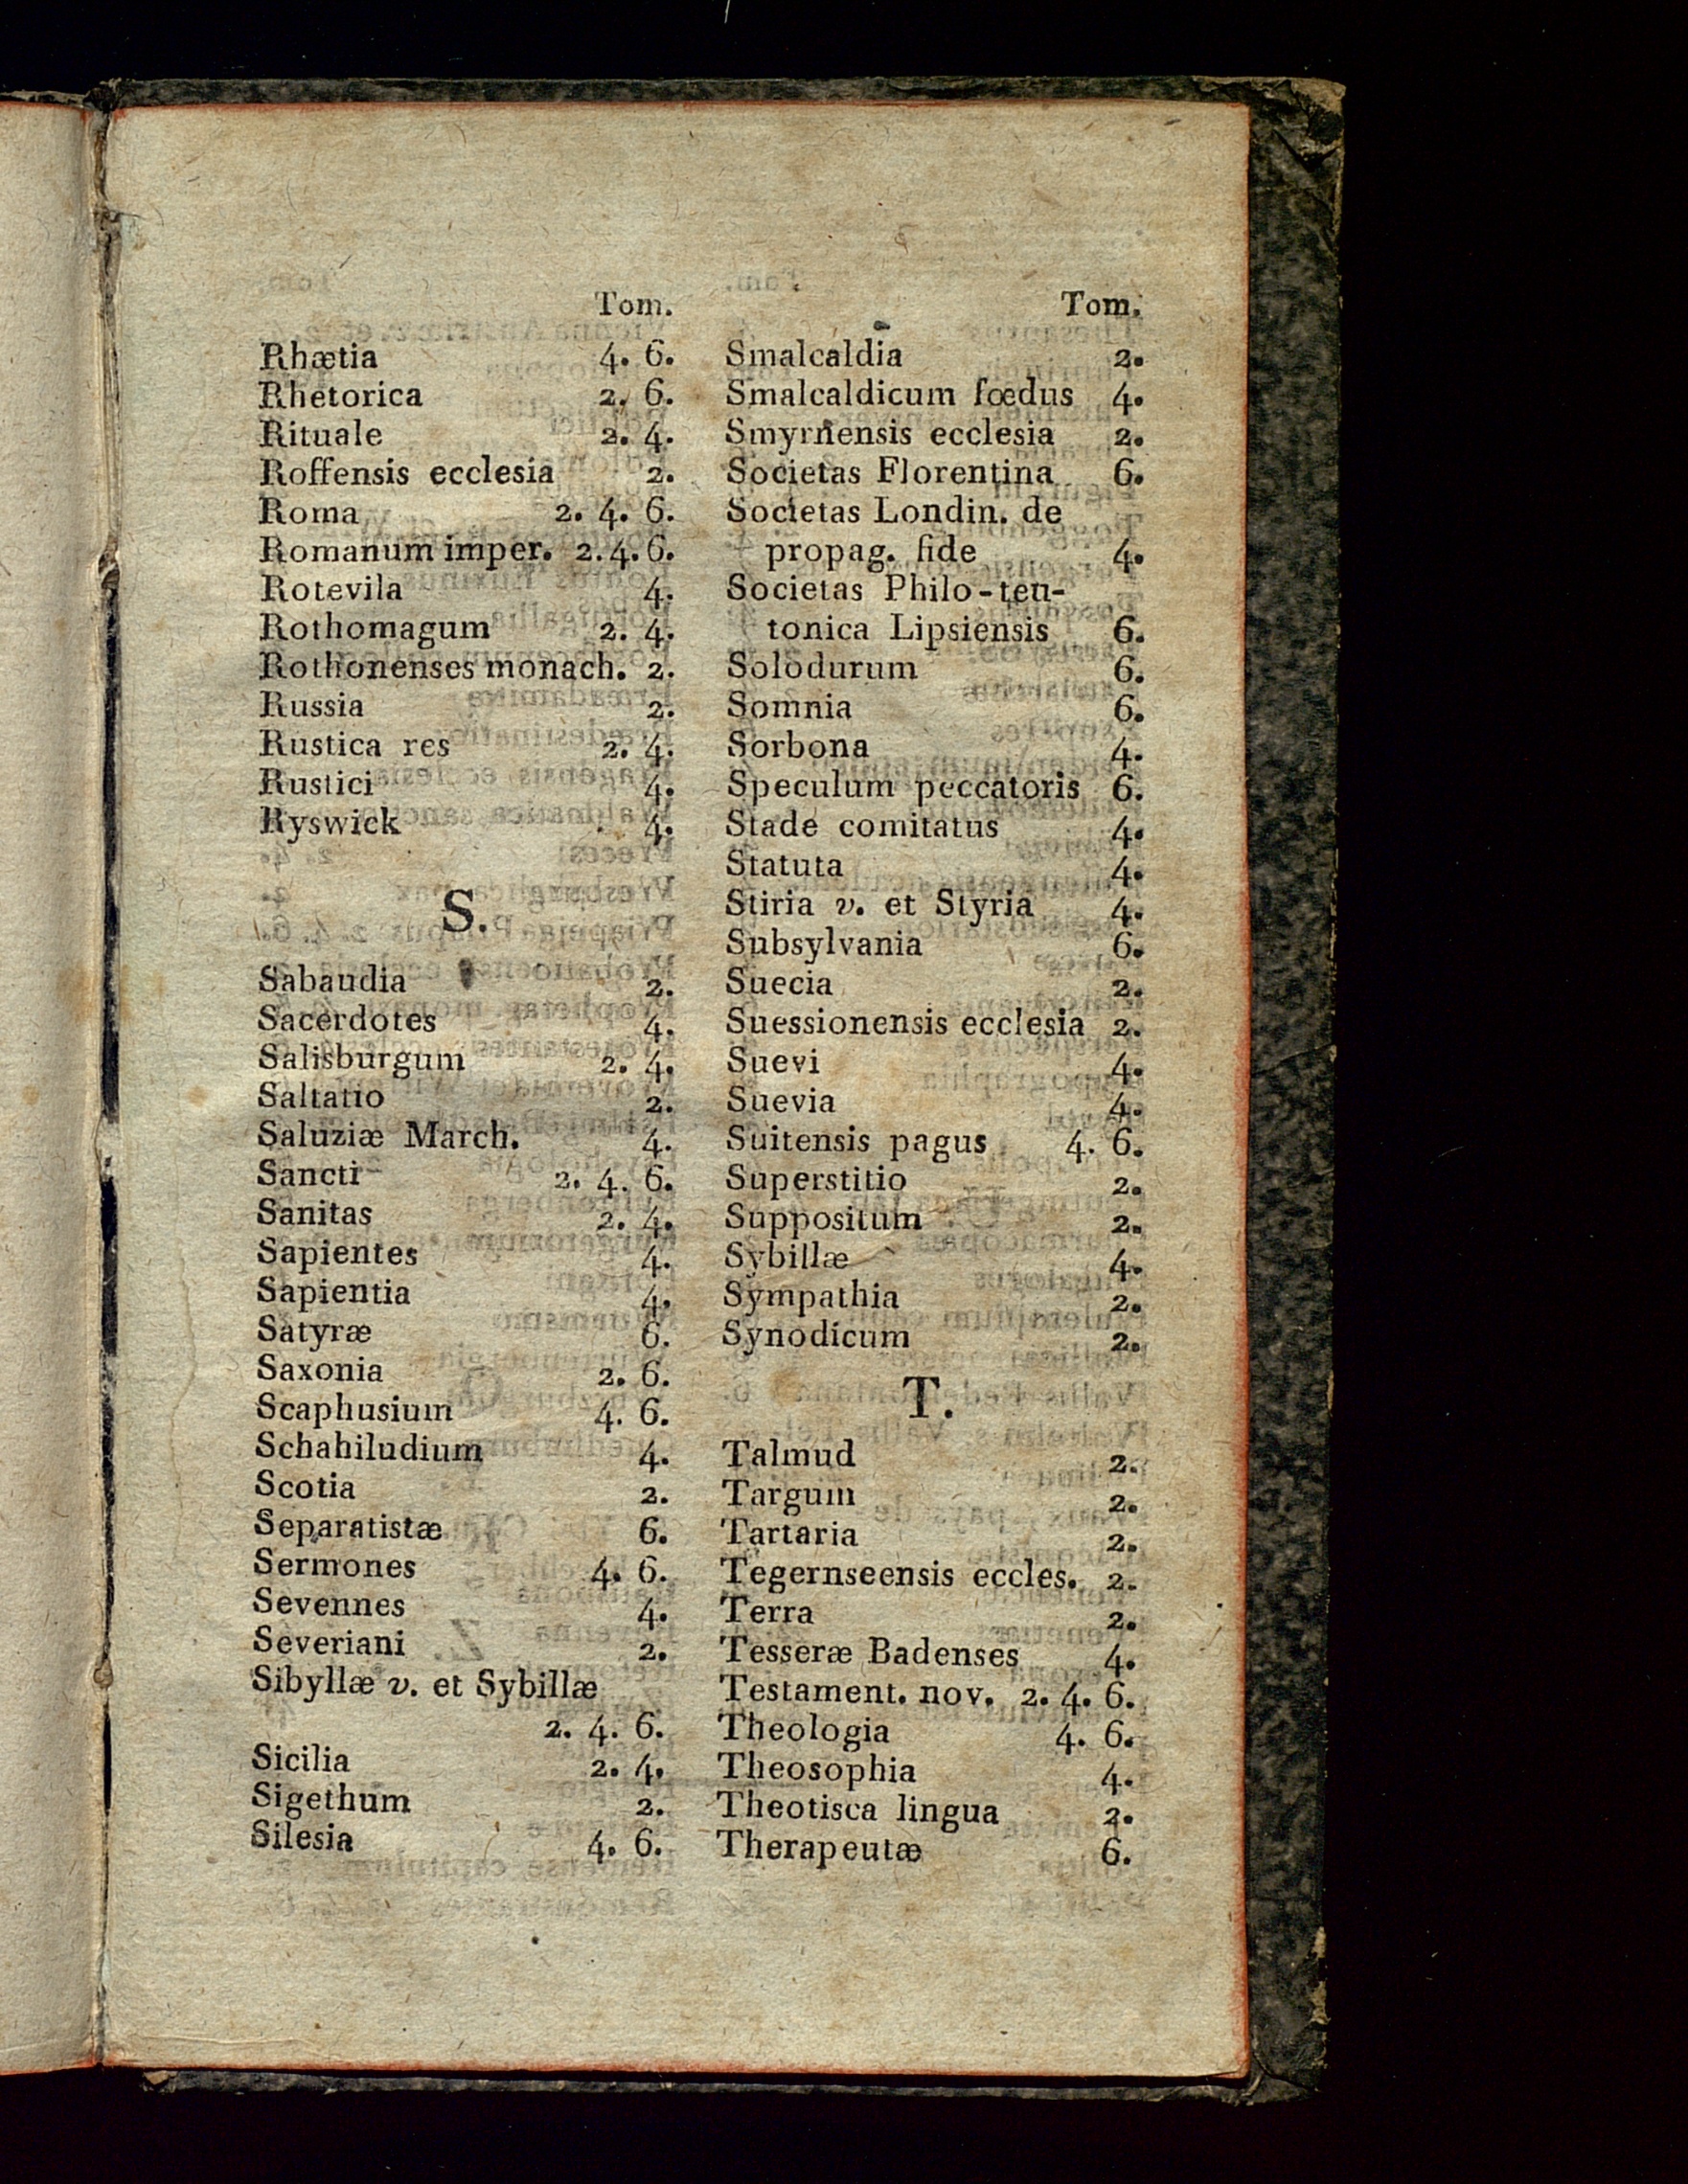 Tom.
Rhætia 4. 6.
Rhetorica 2. 6.
Rituale 2. 4.
Roffensis ecclesia 2.
Roma 2. 4. 6.
Romanum imper. 2. 4. 6.
Rotevila 4.
Rothomagum 2. 4.
Rothonenses monach. 2.
Russia 2.
Rustica res 2. 4.
Rustici 4.
Ryswick 4.
S.
Sabaudia 2.
Sacerdotes 4.
Salisburgum 2. 4.
Saltatio 2.
Saluziæ March. 4.
Sancti 2. 4. 6.
Sanitas 2. 4.
Sapientes 4.
Sapientia 4.
Satyræ 6.
Saxonia 2. 6.
Scaphusium 4. 6.
Schahiludium 4.
Scotia 2.
Separatistæ 6.
Sermones 4. 6.
Sevennes 4.
Severiani 2.
Sibyllæ v. et Sybillæ
2. 4. 6.
Sicilia 2. 4.
Sigethum 2.
Silesia 4. 6.
Tom.
Smalcaldia 2.
Smalcaldicum fœdus 4.
Smyrnensis ecclesia 2.
Societas Florentina 6.
Societas Londin. de
propag. fide 4.
Societas Philo-teu-
tonica Lipsiensis 6.
Solodurum 6.
Somnia 6.
Sorbona 4.
Speculum peccatoris 6.
Stade comitatus 4.
Statuta 4.
Stiria v. et Styria 4.
Subsylvania 6.
Suecia 2.
Suessionensis ecclesia 2.
Suevi 4.
Suevia 4.
Suitensis pagus 4. 6.
Superstitio 2.
Suppositum 2.
Sybillæ 4.
Sympathia 2.
Synodicum 2.
T.
Talmud 2.
Targum 2.
Tartaria 2.
Tegernseensis eccles. 2.
Terra 2.
Tesseræ Badenses 4.
Testament. nov. 2. 4. 6.
Theologia 4. 6.
Theosophia 4.
Theotisca lingua 2.
Therapeutæ 6.